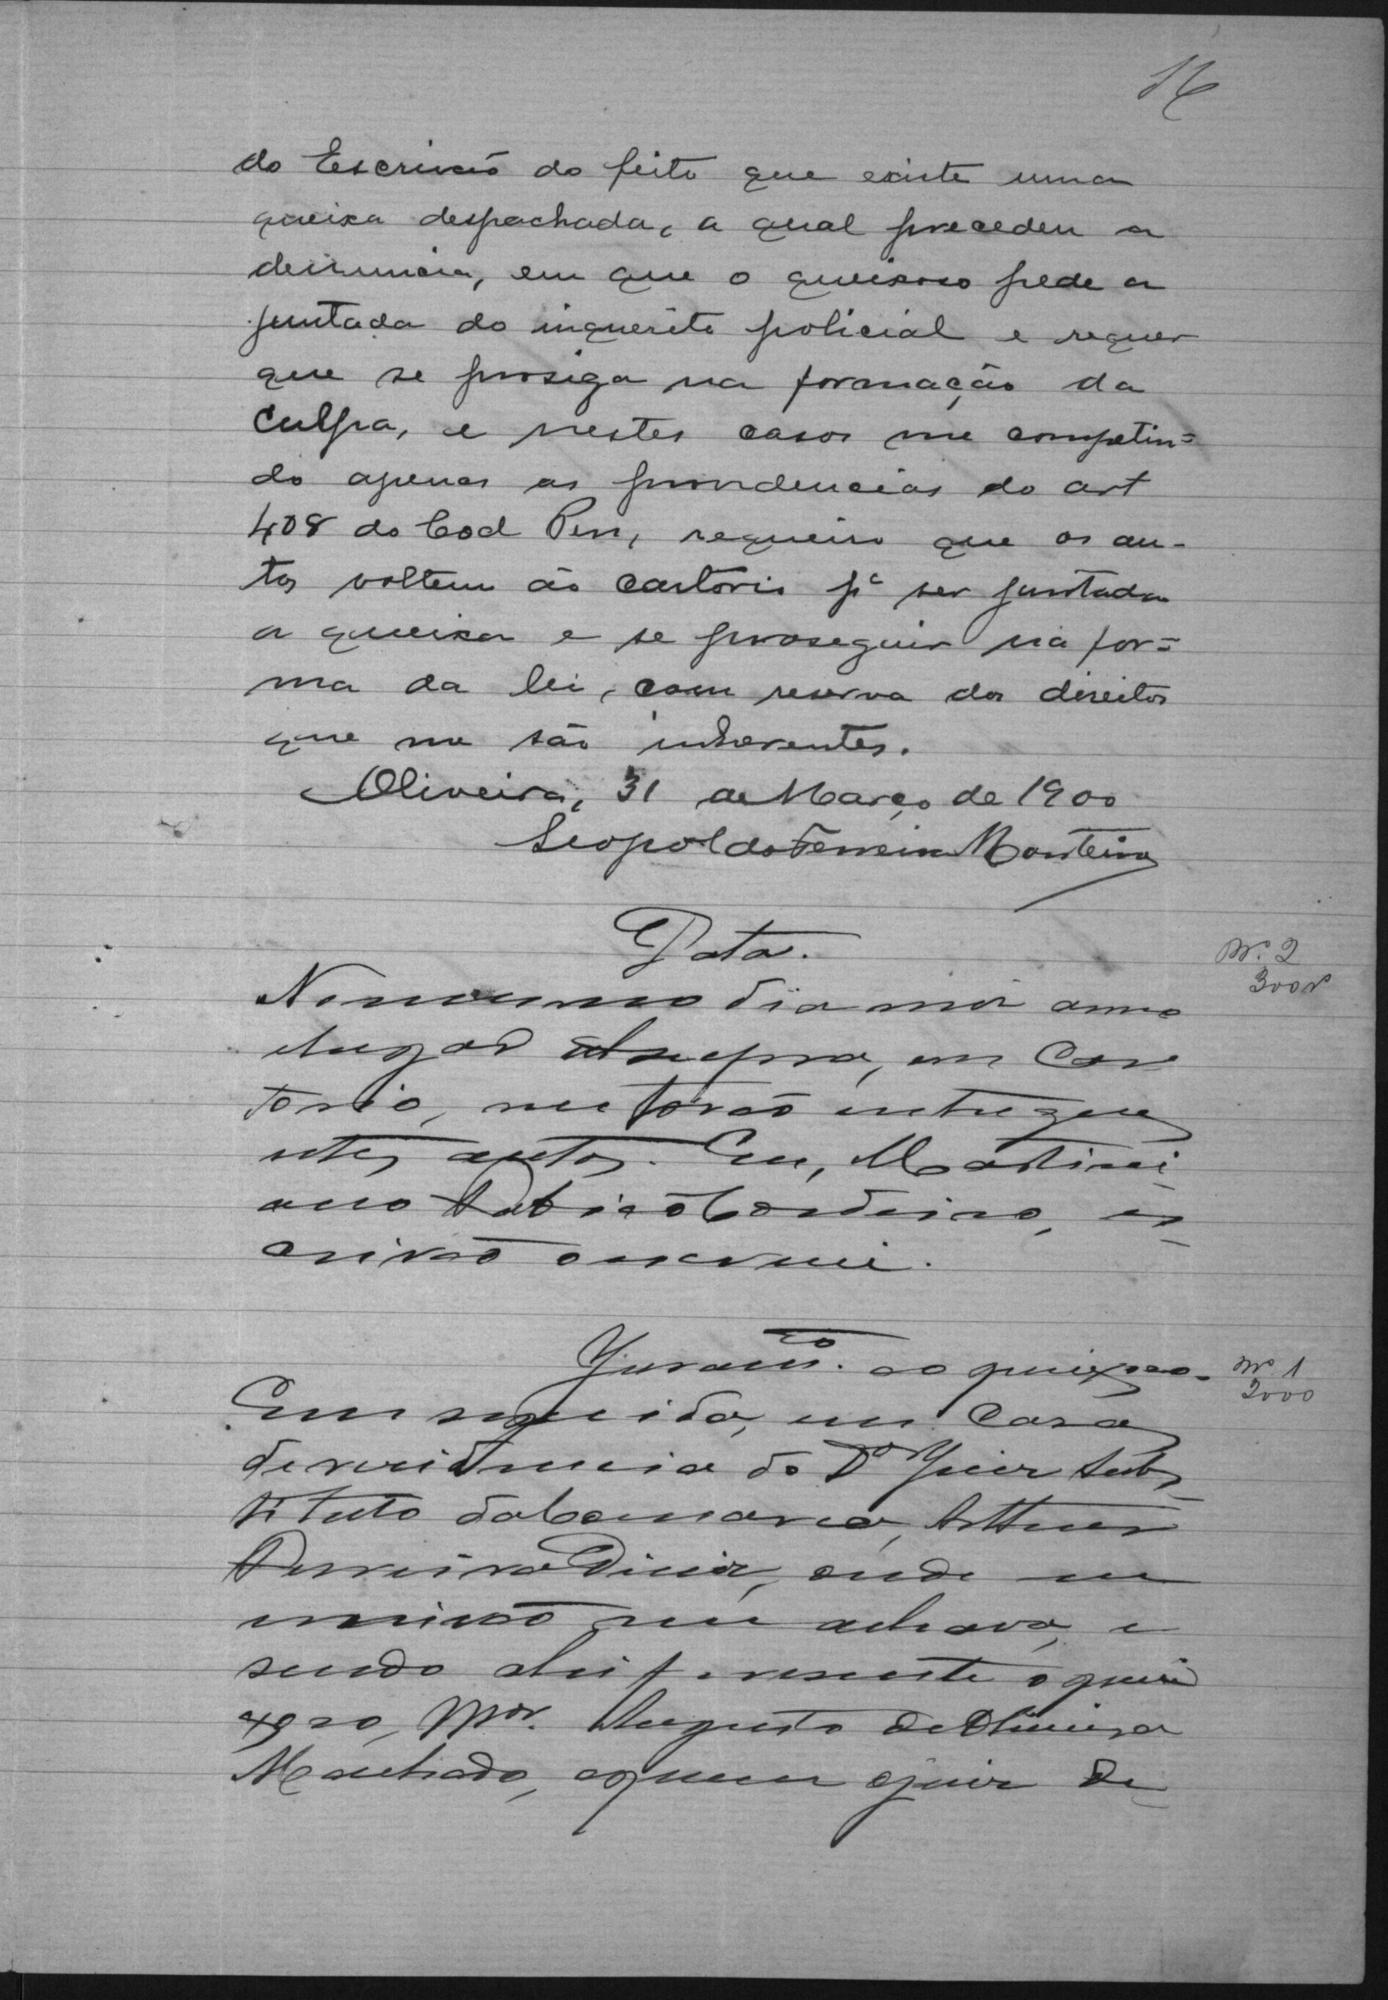 16
do Escrivão do feito que existe uma
queixa despachada, a qual precedeu a
denuncia, em que o queixoso pede a
juntada do inquerito policial e requer
que se prosiga na formação da
culpa, e nestes casos me competin=
do apenas as providencias do art
408 do Cod Pen, requeiro que os au-
tos voltem ao cartorio pª ser juntada
a queixa e se proseguir na for=
ma da lei, com reserva dos direitos
que me são inherentes.
Oliveira, 31 de Março de 1900
Leopoldo Ferreira Monteiro
Data.
Nº 2
300r
No mesmo dia mez anno
e lugar supra, em Car
torio, me forão entregues
estes autos. Eu, Martini
ano Cordeiro, es
crivão o escrevi.
Juramto. ao queixoso.
Nº 1
2000
Em seguida, em Casa
de residencia do Dr Juiz Subs
tituto da Comarca, Arthur
Ferreira Diniz, onde eu
escrivão me achava, e
sendo ahi presente o quei
xoso, Mor. Augusto de Oliveira
Machado, a quem o juiz de